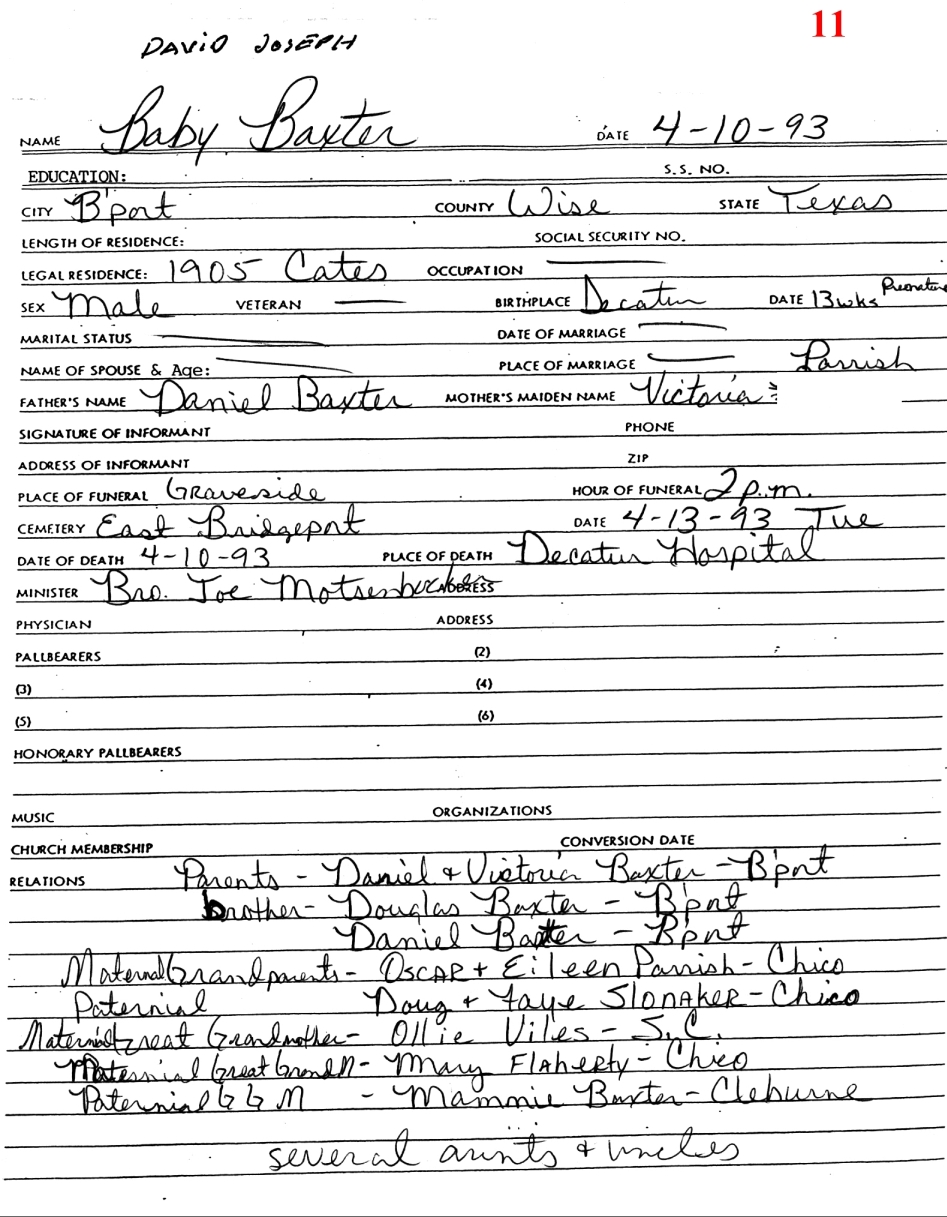 11
DAVID JOSEPH
NAME Baby Baxter DATE 4-10-93
EDUCATION: S.S. NO.
CITY B'port COUNTY Wise STATE Texas
LENGTH OF RESIDENCE: SOCIAL SECURITY NO.
LEGAL RESIDENCE: 1905 Cates OCCUPATION
SEX Male VETERAN BIRTHPLACE Decatur DATE 13wks Premature
MARITAL STATUS DATE OF MARRIAGE
NAME OF SPOUSE & Age: PLACE OF MARRIAGE Parrish
FATHER'S NAME Daniel Baxter MOTHER'S MAIDEN NAME Victoria
SIGNATURE OF INFORMANT PHONE
ADDRESS OF INFORMANT ZIP
PLACE OF FUNERAL Graveside HOUR OF FUNERAL 2 p.m.
CEMETERY East Bridgeport DATE 4-13-93 Tue
DATE OF DEATH 4-10-93 PLACE OF DEATH Decatur Hospital
MINISTER Bro. Joe Motsenbocker ADDRESS
PHYSICIAN ADDRESS
PALLBEARERS (2)
(3) (4)
(5) (6)
HONORARY PALLBEARERS
MUSIC ORGANIZATIONS
CHURCH MEMBERSHIP CONVERSION DATE
RELATIONS Parents - Daniel + Victoria Baxter - B'port
brother - Douglas Baxter - B'port
Daniel Baxter - B'port
Maternal Grandparents - OSCAR + Eileen Parrish - Chico
Paternial Doug + Faye SLONAKER - Chico
Maternial Great Grandmother - Ollie Viles - S.C.
Maternial Great GrandM - Mary FlAherty - Chico
Paternial G G M - Mammie Baxter - Cleburne
several aunts + uncles